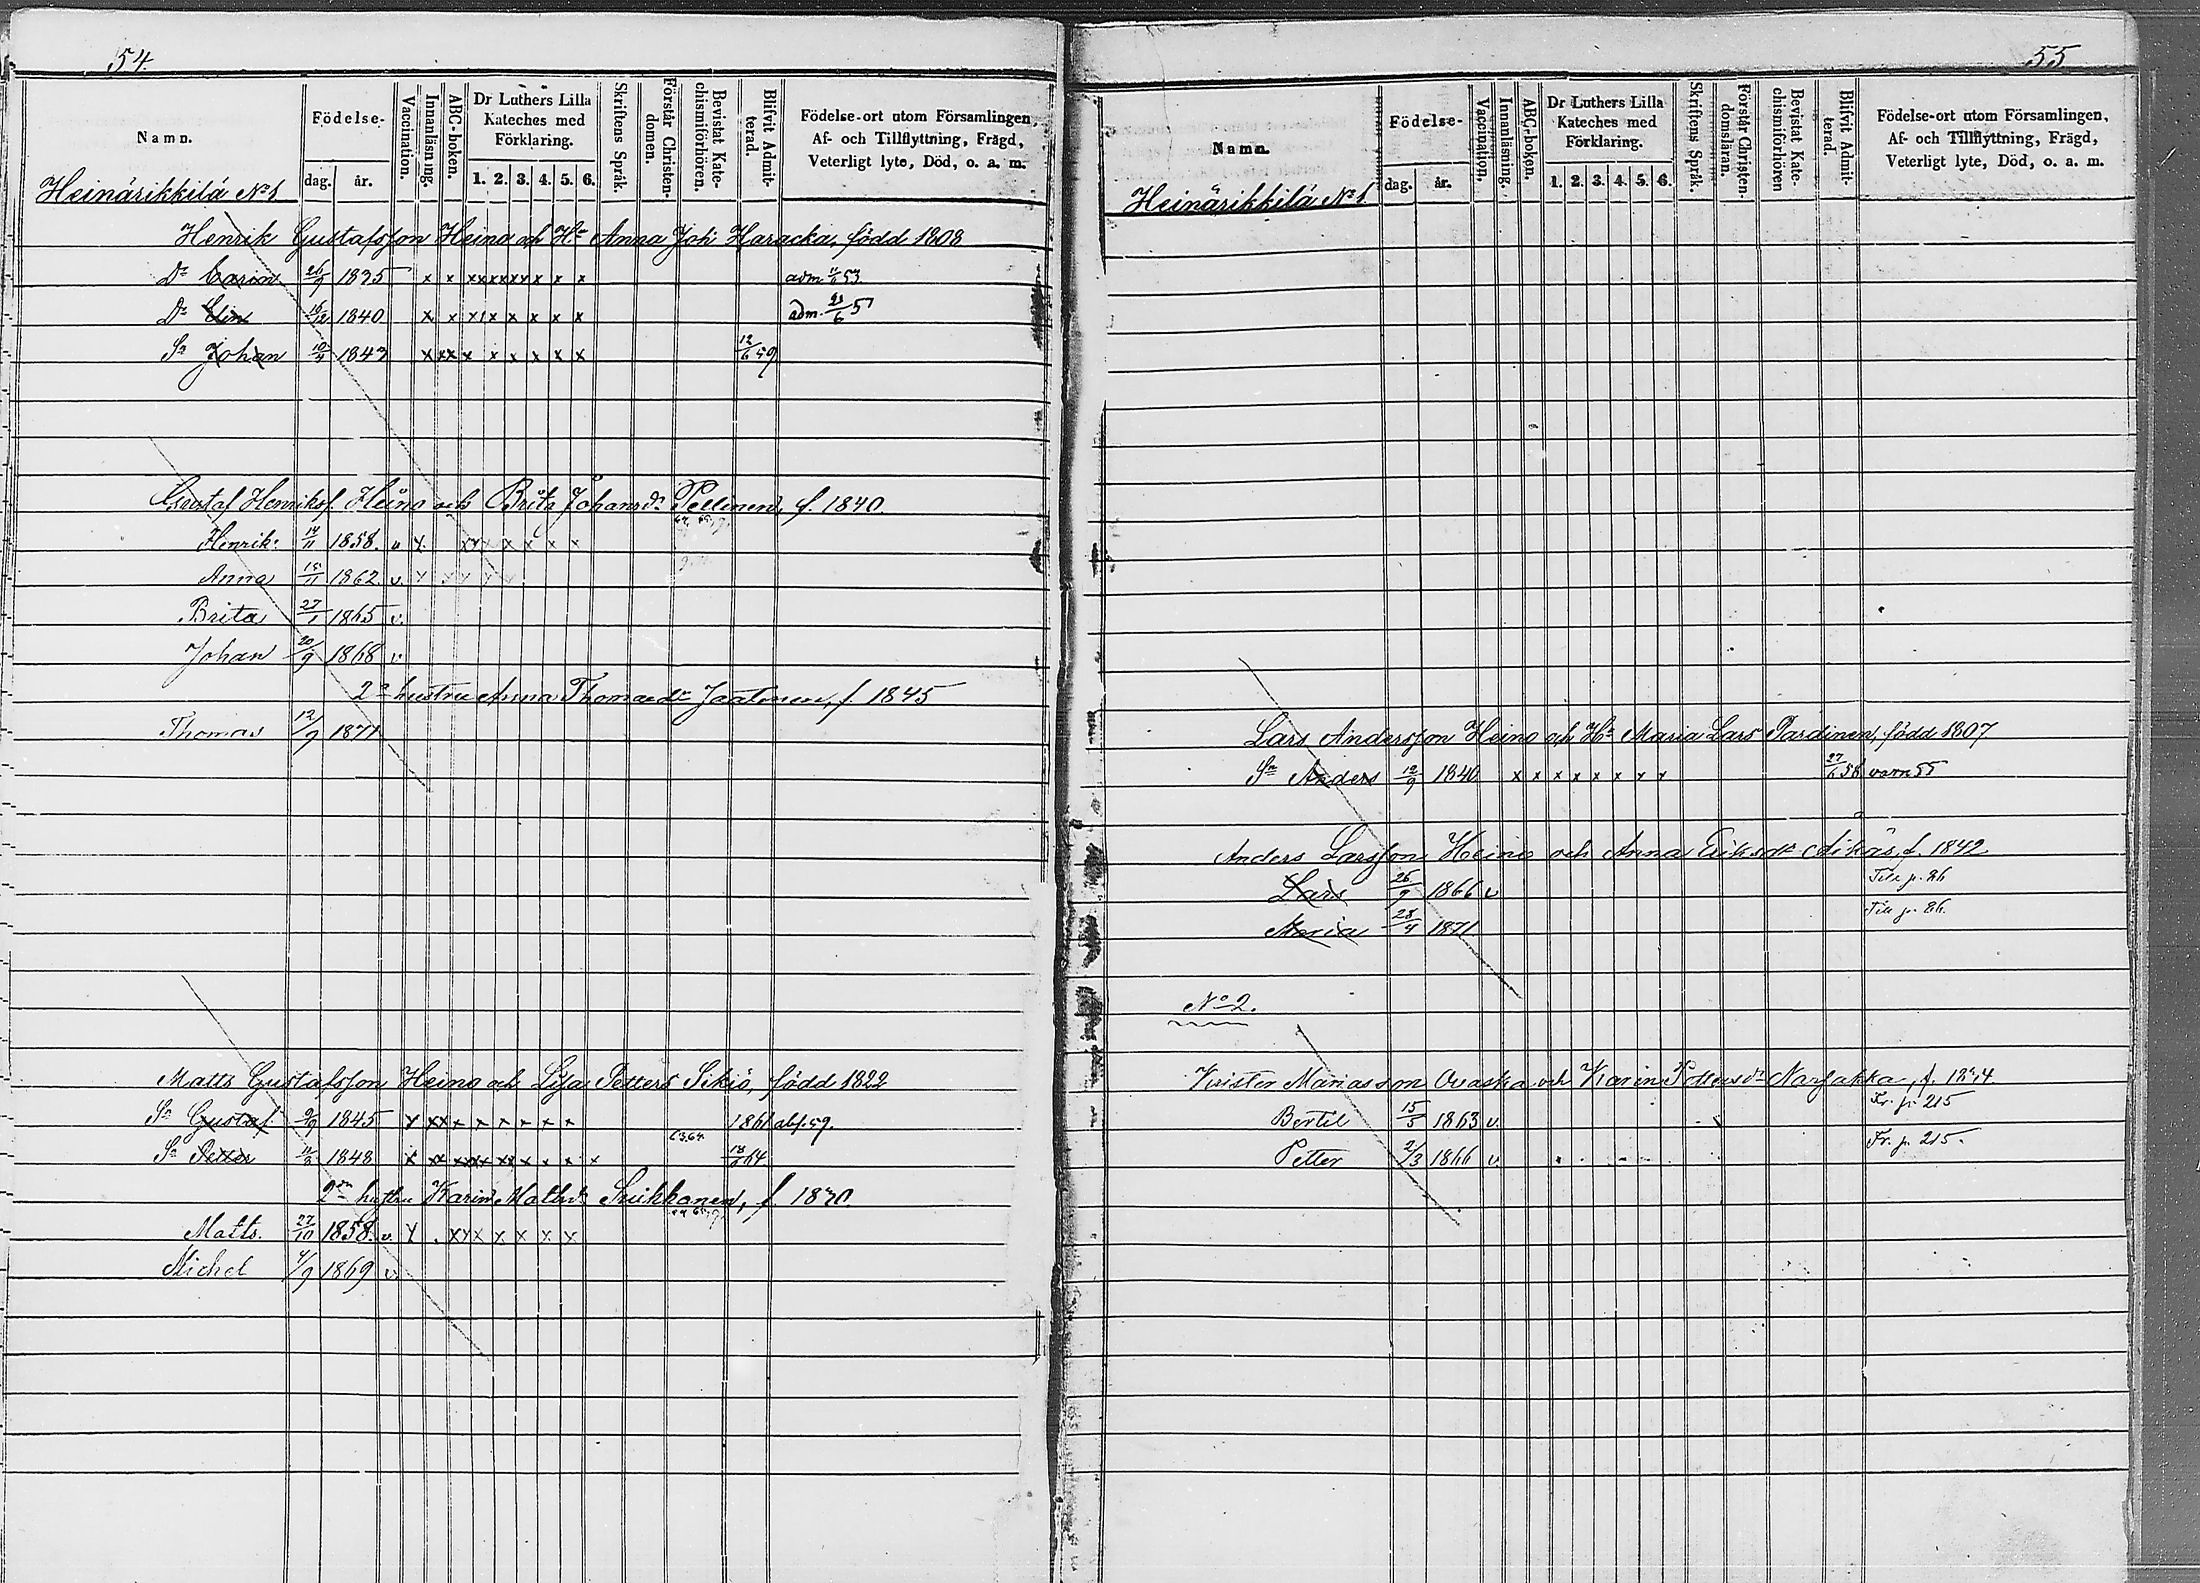 54.
Namn. Födelse- dag. år. Vaccination. Innanläsning. ABC-boken. Dr Luthers Lilla Kateches med Förklaring. 1. 2. 3. 4. 5. 6. Skriftens Språk. Förstår Christendomen. Bevistat Katechismiförhören. Blifvit Admitterad. Födelse-ort utom Församlingen, Af- och Tillflyttning, Frägd, Veterligt lyte, Död, o. a. m.
Heinärikkilä No 1
Henrik Gustafsson Heino och Hu Anna Joh: Haracka, född 1808
Dr Carin 26/9 1835 x x xxxxxx x x x adm 53.
Dr Elin 1840 x x x x x x x x adm. /6 57
Sn Johan 1843 x xx x x x x x x 12/6 59
Gustaf Henriksf. Heino och Brita Johansdr Pellinen, f. 1840.
Henrik 14/11 1858. v x xxx x x x x
Anna 15/11 1862. v x
Brita 27/1 1865 v.
Johan 20/9 1868 v
2a hustru Anna Thomasdr Jaatinen, f. 1845
Thomas 12/9 1871
Matts Gustafsson Heino och Lisa Petters Sikiö, född 1822
Sn Gustaf 9/9 1845 x xx x x x x x x 1861 abs. 59.
Sn Petter 1848 x xx xxxx xx x x x x 64
2n hustru Karin Mattsdr Suikkanen, f. 1830.
Matts. 27/10 1858. v. x . xxx x x x x
Michel 4/9 1869 v
55
Namn. Födelse- dag. år. Vaccination. Innanläsning. ABC-boken. Dr Luthers Lilla Kateches med Förklaring. 1. 2. 3. 4. 5. 6. Skriftens Språk. Förstår Christendomsläran. Bevistat Katechismiförhören Blifvit Admitterad. Födelse-ort utom Församlingen, Af- och Tillflyttning, Frägd, Veterligt lyte, Död, o. a. m.
Heinärikkilä No 1
Lars Andersson Heino och Hu Maria Lars Pardinen, född 1807
Sn Anders 12/9 1840 x x x x x x x x 27/6 58 varn 55
Anders Larsson Heino och Anna Eriksdr Äikäs, f. 1842
Lars 26/9 1866 v Till p. 86
Maria 28/4 1871 Till p. 86.
No 2.
Krister Mariasson Ovaska och Karin Pettersdr Narjakka, f.
Bertil 15/5 1863 v. Fr. p. 215
Petter 2/3 1866 v Fr. p. 215.